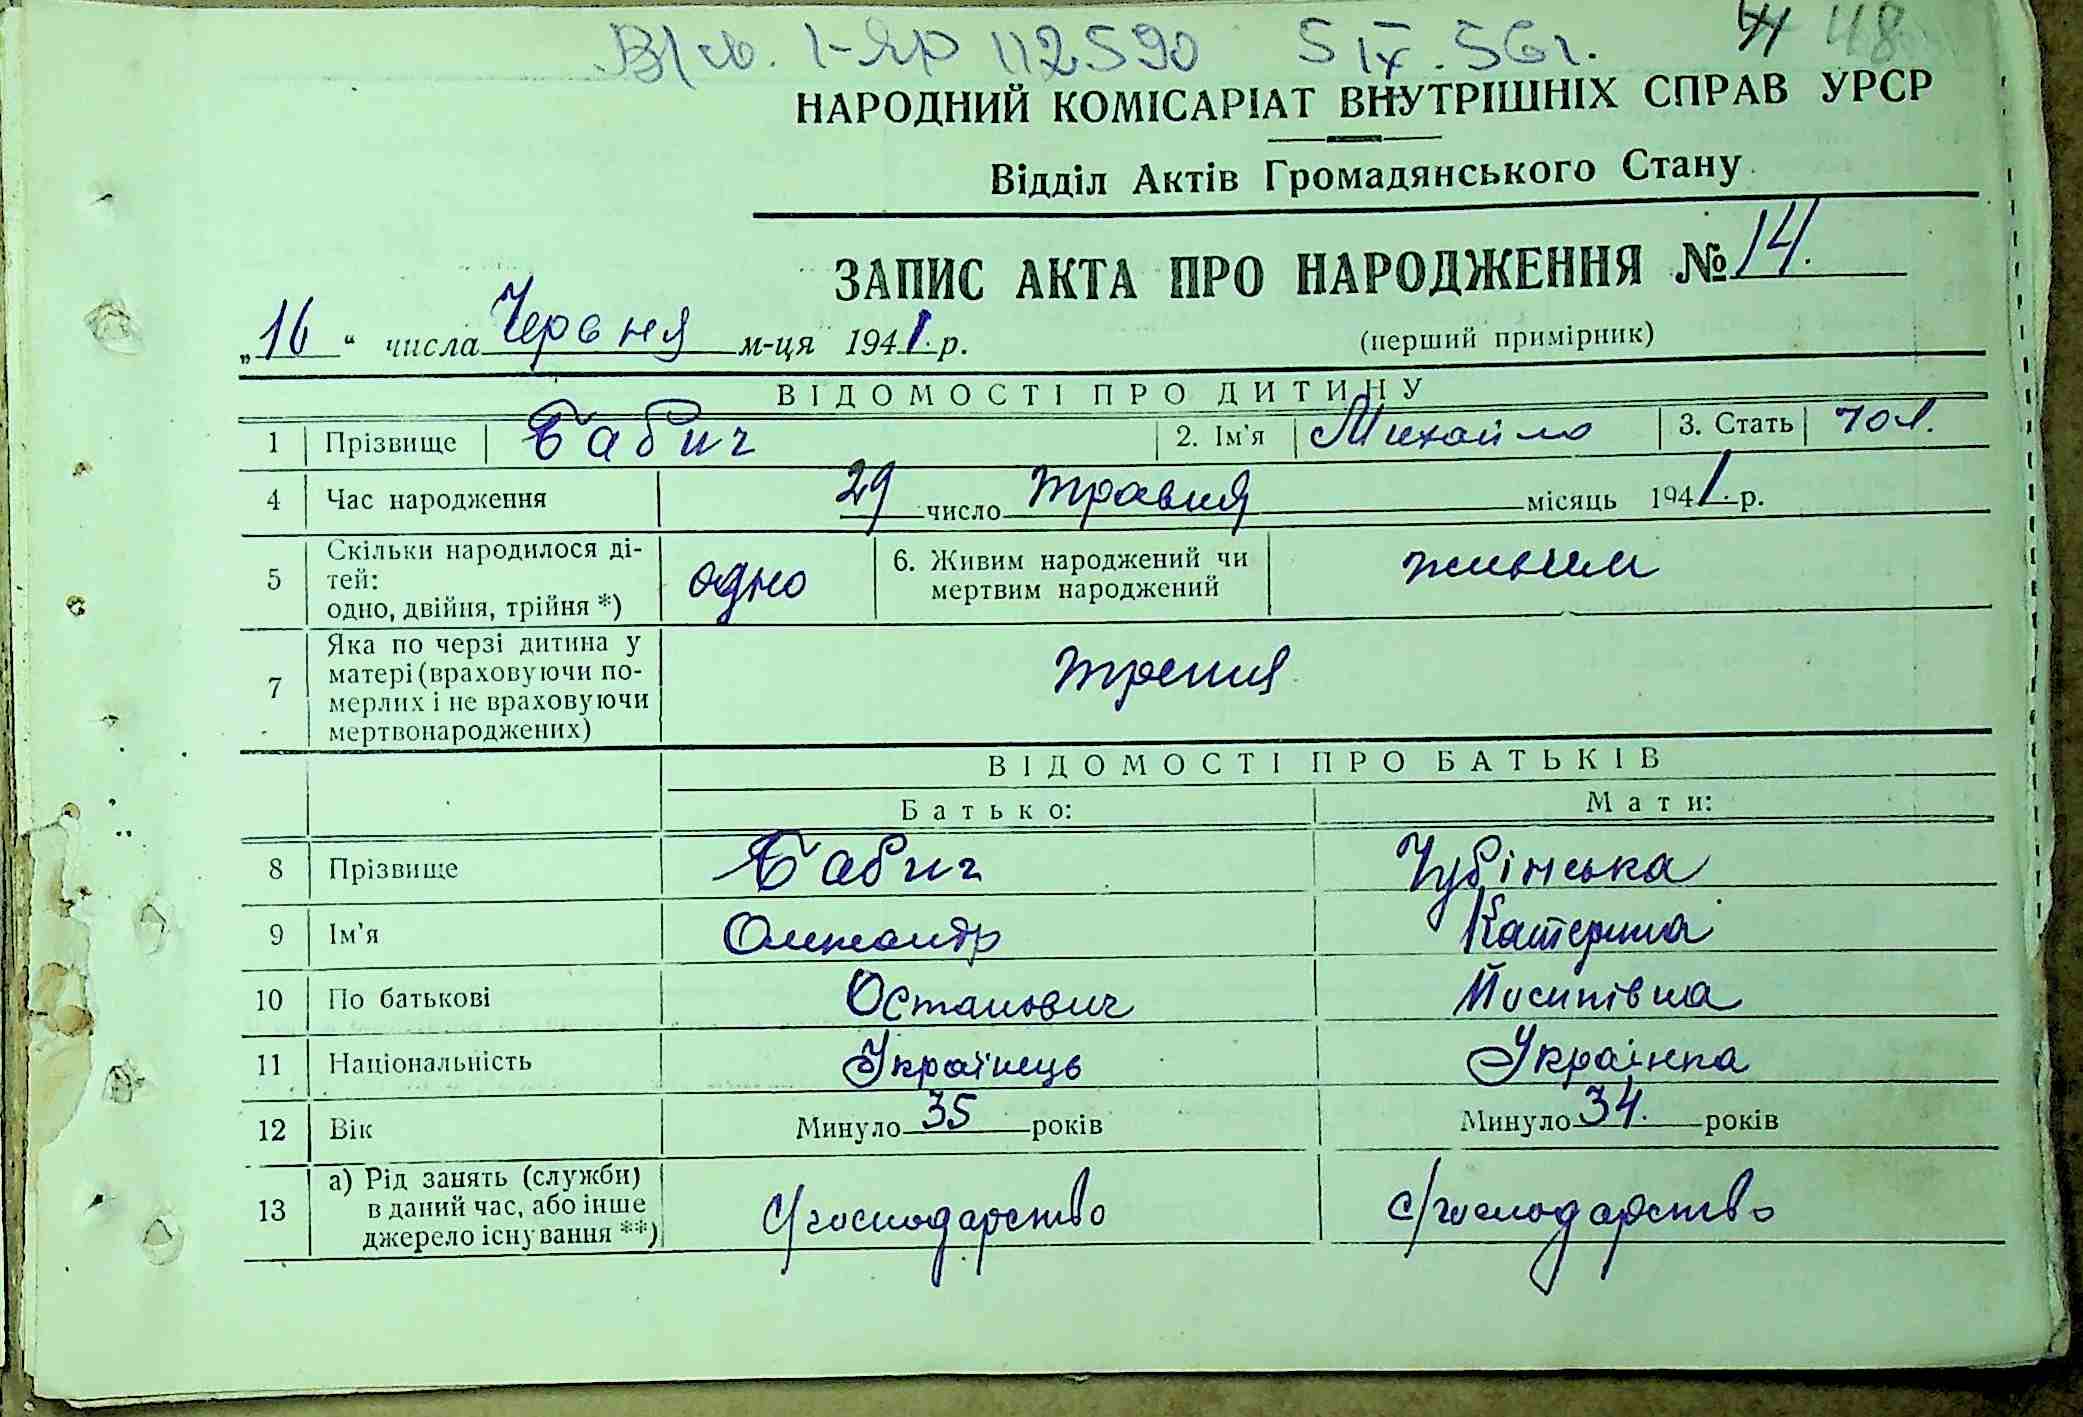 В/св. І-ЯР 112590 5 IX. 56 г. 48
НАРОДНИЙ КОМІСАРІАТ ВНУТРІШНІХ СПРАВ УРСР
Відділ Актів Громадянського Стану
ЗАПИС АКТА ПРО НАРОДЖЕННЯ № 14.
„16“ числа Червня м-ця 1941. р.
(перший примірник)
ВІДОМОСТІ ПРО ДИТИНУ
1 Прізвище Бабич 2. Ім'я Михайло 3. Стать чол.
4 Час народження 29 число травня місяць 1941. р.
5 Скільки народилося ді-
тей:
одно, двійня, трійня *) одно 6. Живим народжений чи
мертвим народжений живим
7 Яка по черзі дитина у
матері (враховуючи по-
мерлих і не враховуючи
мертвонароджених) третя
ВІДОМОСТІ ПРО БАТЬКІВ
Батько: Мати:
8 Прізвище Бабич Чубінська
9 Ім'я Олександр Катерина
10 По батькові Остапович Йосипівна
11 Національність Українець Українка
12 Вік Минуло 35 років Минуло 34. років
13 а) Рід занять (служби)
в даний час, або інше
джерело існування **) с/господарство с/господарство